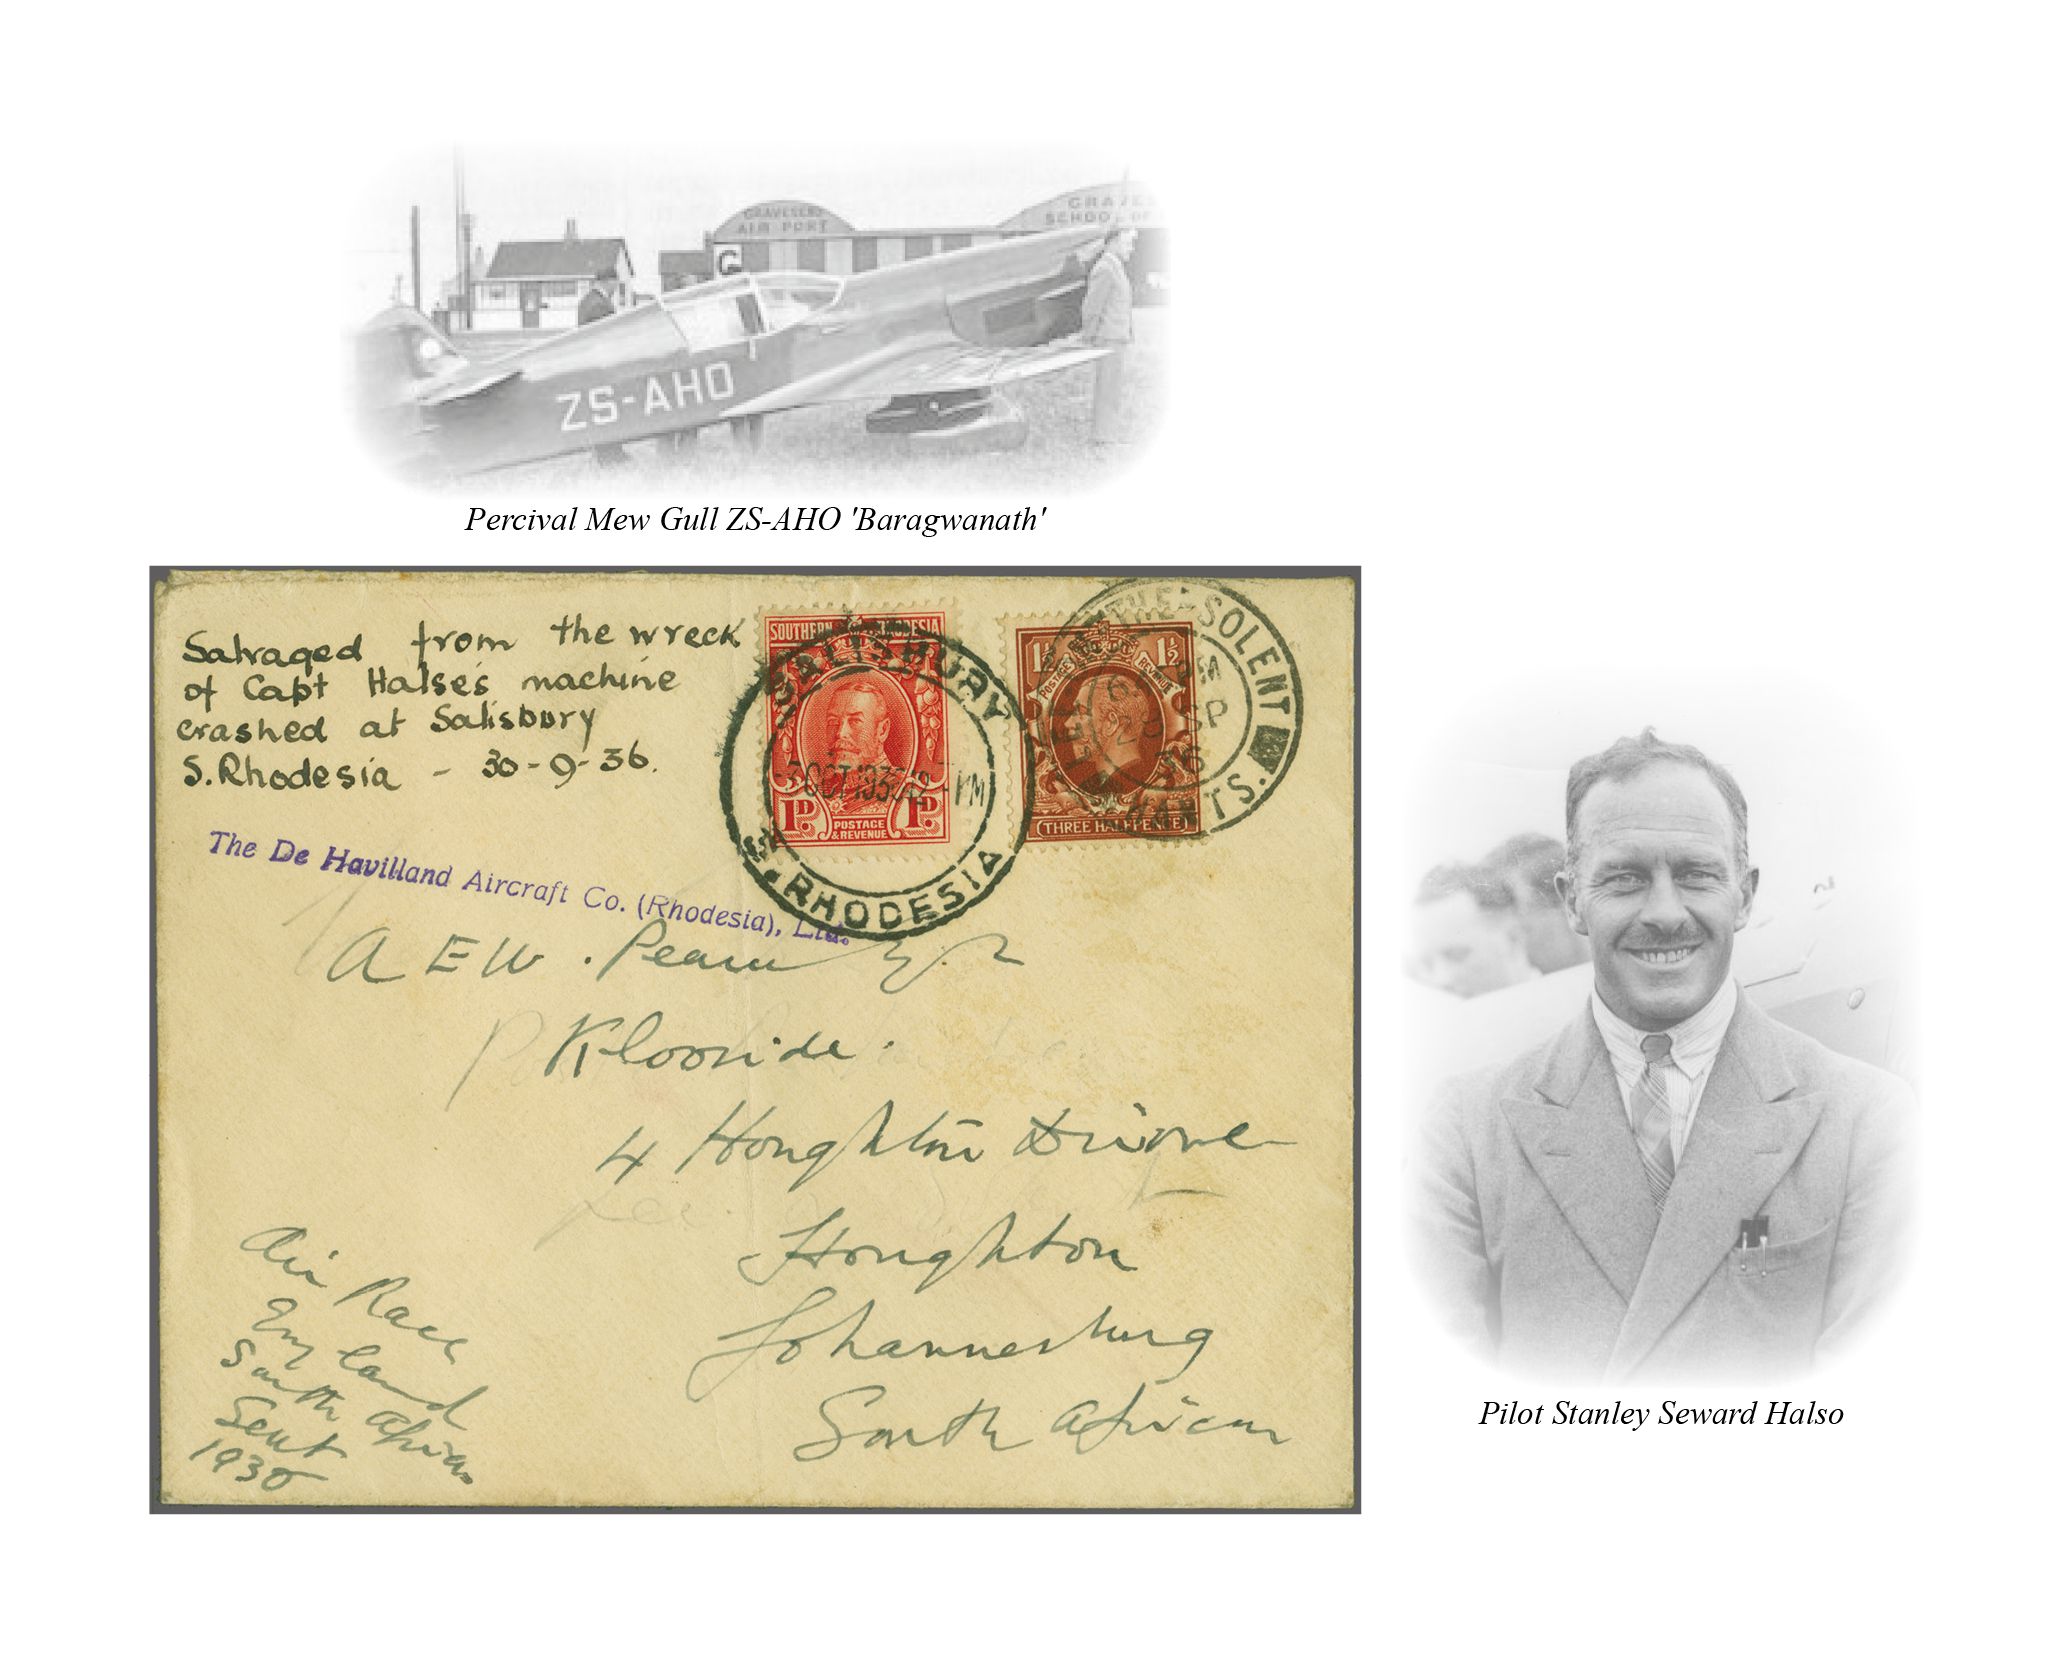 GRAVESEND
AIR PORT
GRAVES
SCHOOL OF
G
ZS-AHO
Percival Mew Gull ZS-AHO 'Baragwanath'
Salvaged from the wreck
of Capt Halse's machine
crashed at Salisbury
S. Rhodesia - 30-9-36.
SOUTHERN RHODESIA
1D. POSTAGE & REVENUE 1D.
SALISBURY
3 OCT 1936 12 - PM
S. RHODESIA
1½ 1½
POSTAGE REVENUE
THREE HALFPENCE
LEE-ON-THE-SOLENT
PM
28 SP
36
HANTS.
The De Havilland Aircraft Co. (Rhodesia), Ltd.
A E W. Pearse Esqr
Kloofside.
4 Houghton Drive
Houghton
Johannesburg
South African
Air Race
England
South Africa
Sent
1936
Pilot Stanley Seward Halso